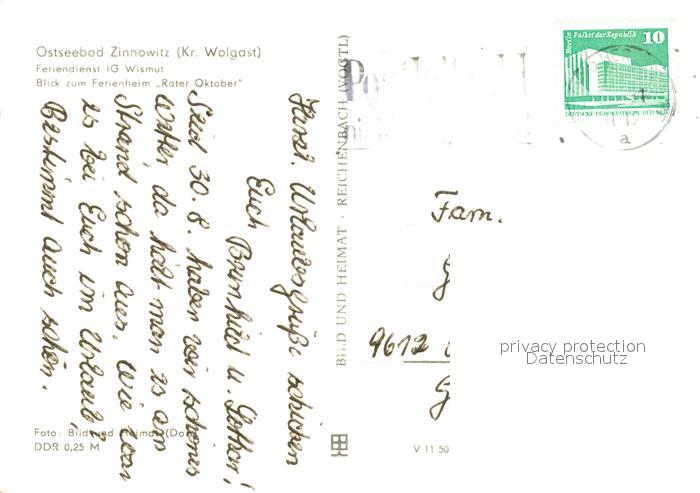 Ostseebad Zinnowitz (Kr. Wolgast)
Feriendienst IG Wismut
Blick zum Ferienheim „Roter Oktober"
Herzl. Urlaubsgrüße schicken
Euch
Brunhild u. Lothar!
Seit 30. 8. haben wir schönes
Wetter, da hält man es am
Strand schon aus. Wie war
es bei Euch im Urlaub?
Bestimmt auch schön.
Foto: Bild und Heimat
DDR 0,25 M
BILD UND HEIMAT · REICHENBACH (VOGTL)
V 11 50
Berlin Palast der Republik
10
DEUTSCHE DEMOKRATISCHE REPUBLIK
a
Fam.
G
9612
G
privacy protection
Datenschutz